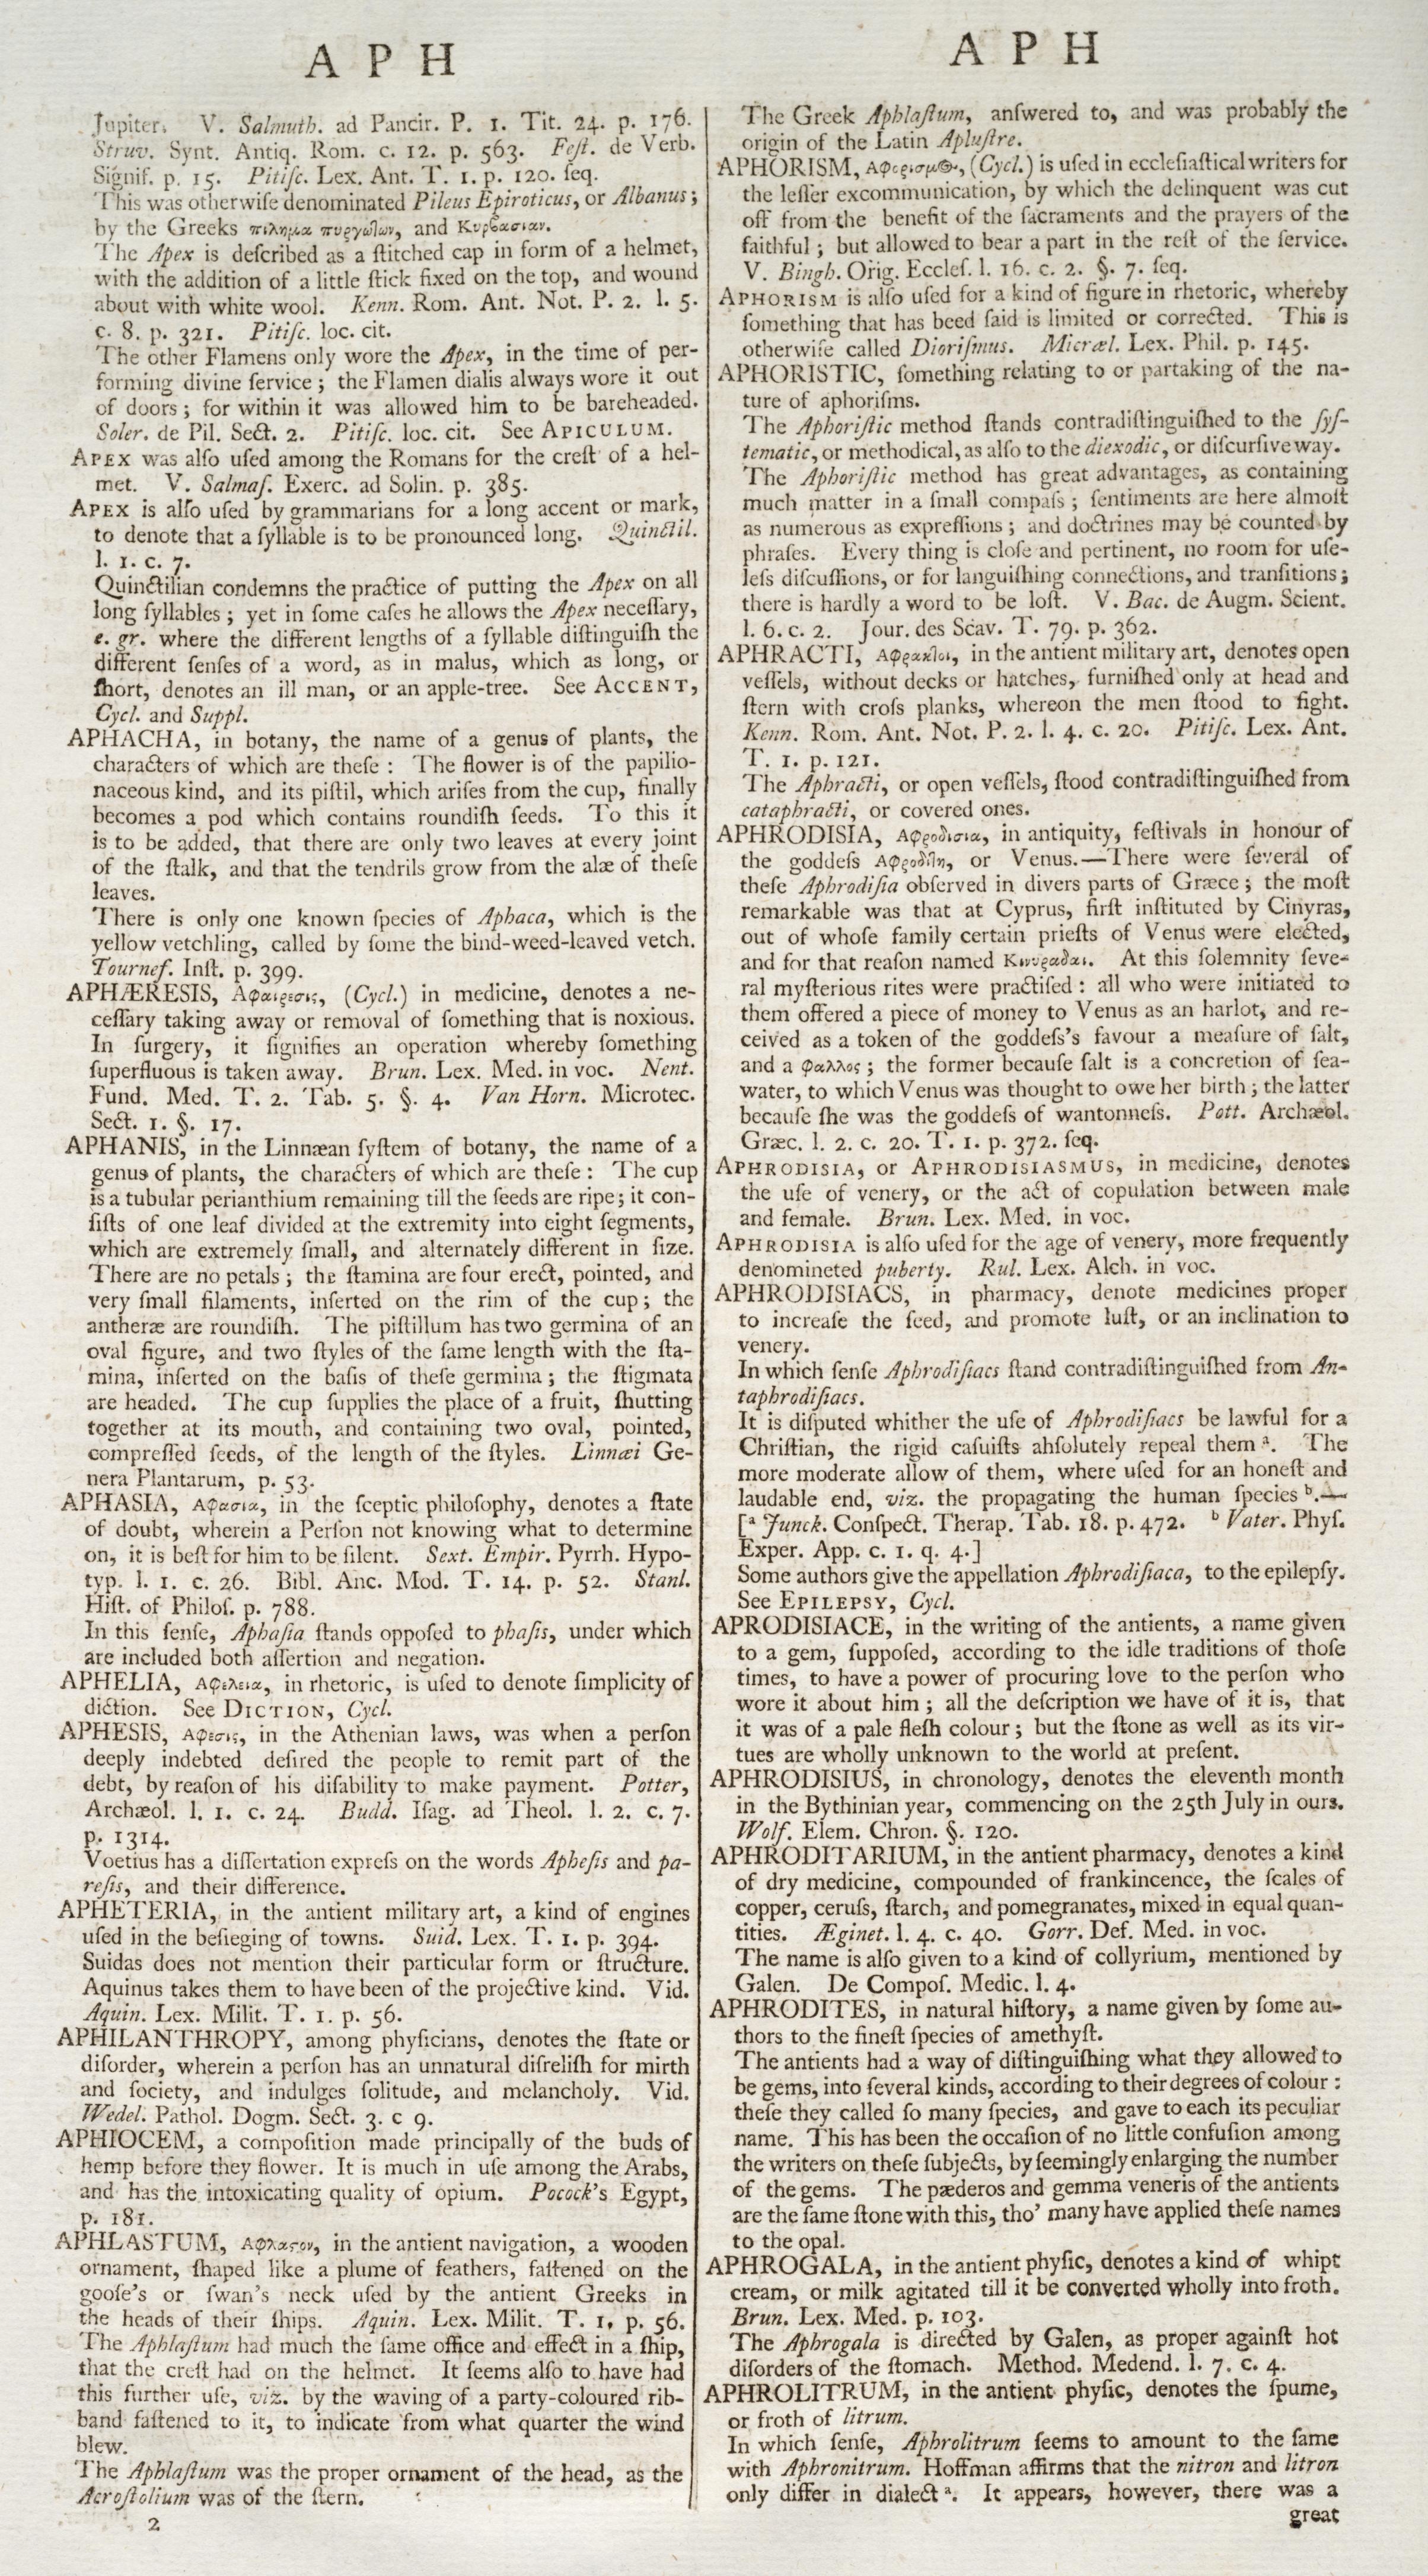 A P H
Jupiter. V. Salmuth. ad Pancir. P. 1. Tit. 24. p. 176.
Struv. Synt. Antiq. Rom. c. 12. p. 563. Feſt. de Verb.
Signif. p. 15. Pitiſc. Lex. Ant. T. 1. p. 120. ſeq.
This was otherwiſe denominated Pileus Epiroticus, or Albanus;
by the Greeks πιλημα πυργωτων, and Κυρβασιαν.
The Apex is deſcribed as a ſtitched cap in form of a helmet,
with the addition of a little ſtick fixed on the top, and wound
about with white wool. Kenn. Rom. Ant. Not. P. 2. l. 5.
c. 8. p. 321. Pitiſc. loc. cit.
The other Flamens only wore the Apex, in the time of per-
forming divine ſervice; the Flamen dialis always wore it out
of doors; for within it was allowed him to be bareheaded.
Soler. de Pil. Sect. 2. Pitiſc. loc. cit. See APICULUM.
APEX was alſo uſed among the Romans for the creſt of a hel-
met. V. Salmaſ. Exerc. ad Solin. p. 385.
APEX is alſo uſed by grammarians for a long accent or mark,
to denote that a ſyllable is to be pronounced long. Quinctil.
l. 1. c. 7.
Quinctilian condemns the practice of putting the Apex on all
long ſyllables; yet in ſome caſes he allows the Apex neceſſary,
e. gr. where the different lengths of a ſyllable diſtinguiſh the
different ſenſes of a word, as in malus, which as long, or
ſhort, denotes an ill man, or an apple-tree. See ACCENT,
Cycl. and Suppl.
APHACHA, in botany, the name of a genus of plants, the
characters of which are theſe: The flower is of the papilio-
naceous kind, and its piſtil, which ariſes from the cup, finally
becomes a pod which contains roundiſh ſeeds. To this it
is to be added, that there are only two leaves at every joint
of the ſtalk, and that the tendrils grow from the alæ of theſe
leaves.
There is only one known ſpecies of Aphaca, which is the
yellow vetchling, called by ſome the bind-weed-leaved vetch.
Tournef. Inſt. p. 399.
APHÆRESIS, Αφαιρεσις, (Cycl.) in medicine, denotes a ne-
ceſſary taking away or removal of ſomething that is noxious.
In ſurgery, it ſignifies an operation whereby ſomething
ſuperfluous is taken away. Brun. Lex. Med. in voc. Nent.
Fund. Med. T. 2. Tab. 5. §. 4. Van Horn. Microtec.
Sect. 1. §. 17.
APHANIS, in the Linnæan ſyſtem of botany, the name of a
genus of plants, the characters of which are theſe: The cup
is a tubular perianthium remaining till the ſeeds are ripe; it con-
ſiſts of one leaf divided at the extremity into eight ſegments,
which are extremely ſmall, and alternately different in ſize.
There are no petals; the ſtamina are four erect, pointed, and
very ſmall filaments, inſerted on the rim of the cup; the
antheræ are roundiſh. The piſtillum has two germina of an
oval figure, and two ſtyles of the ſame length with the ſta-
mina, inſerted on the baſis of theſe germina; the ſtigmata
are headed. The cup ſupplies the place of a fruit, ſhutting
together at its mouth, and containing two oval, pointed,
compreſſed ſeeds, of the length of the ſtyles. Linnæi Ge-
nera Plantarum, p. 53.
APHASIA, Αφασια, in the ſceptic philoſophy, denotes a ſtate
of doubt, wherein a Perſon not knowing what to determine
on, it is beſt for him to be ſilent. Sext. Empir. Pyrrh. Hypo-
typ. l. 1. c. 26. Bibl. Anc. Mod. T. 14. p. 52. Stanl.
Hiſt. of Philoſ. p. 788.
In this ſenſe, Aphaſia ſtands oppoſed to phaſis, under which
are included both aſſertion and negation.
APHELIA, Αφελεια, in rhetoric, is uſed to denote ſimplicity of
diction. See DICTION, Cycl.
APHESIS, Αφεσις, in the Athenian laws, was when a perſon
deeply indebted deſired the people to remit part of the
debt, by reaſon of his diſability to make payment. Potter,
Archæol. l. 1. c. 24. Budd. Iſag. ad Theol. l. 2. c. 7.
p. 1314.
Voetius has a diſſertation expreſs on the words Apheſis and pa-
reſis, and their difference.
APHETERIA, in the antient military art, a kind of engines
uſed in the beſieging of towns. Suid. Lex. T. 1. p. 394.
Suidas does not mention their particular form or ſtructure.
Aquinus takes them to have been of the projective kind. Vid.
Aquin. Lex. Milit. T. 1. p. 56.
APHILANTHROPY, among phyſicians, denotes the ſtate or
diſorder, wherein a perſon has an unnatural diſreliſh for mirth
and ſociety, and indulges ſolitude, and melancholy. Vid.
Wedel. Pathol. Dogm. Sect. 3. c 9.
APHIOCEM, a compoſition made principally of the buds of
hemp before they flower. It is much in uſe among the Arabs,
and has the intoxicating quality of opium. Pocock's Egypt,
p. 181.
APHLASTUM, Αφλαςον, in the antient navigation, a wooden
ornament, ſhaped like a plume of feathers, faſtened on the
gooſe's or ſwan's neck uſed by the antient Greeks in
the heads of their ſhips. Aquin. Lex. Milit. T. 1. p. 56.
The Aphlaſtum had much the ſame office and effect in a ſhip,
that the creſt had on the helmet. It ſeems alſo to have had
this further uſe, viz. by the waving of a party-coloured rib-
band faſtened to it, to indicate from what quarter the wind
blew.
The Aphlaſtum was the proper ornament of the head, as the
Acroſtolium was of the ſtern.
2
A P H
The Greek Aphlaſtum, anſwered to, and was probably the
origin of the Latin Apluſtre.
APHORISM, Αφορισμος, (Cycl.) is uſed in eccleſiaſtical writers for
the leſſer excommunication, by which the delinquent was cut
off from the benefit of the ſacraments and the prayers of the
faithful; but allowed to bear a part in the reſt of the ſervice.
V. Bingh. Orig. Eccleſ. l. 16. c. 2. §. 7. ſeq.
APHORISM is alſo uſed for a kind of figure in rhetoric, whereby
ſomething that has beed ſaid is limited or corrected. This is
otherwiſe called Dioriſmus. Micræl. Lex. Phil. p. 145.
APHORISTIC, ſomething relating to or partaking of the na-
ture of aphoriſms.
The Aphoriſtic method ſtands contradiſtinguiſhed to the ſyſ-
tematic, or methodical, as alſo to the diexodic, or diſcurſive way.
The Aphoriſtic method has great advantages, as containing
much matter in a ſmall compaſs; ſentiments are here almoſt
as numerous as expreſſions; and doctrines may be counted by
phraſes. Every thing is cloſe and pertinent, no room for uſe-
leſs diſcuſſions, or for languiſhing connections, and tranſitions;
there is hardly a word to be loſt. V. Bac. de Augm. Scient.
l. 6. c. 2. Jour. des Scav. T. 79. p. 362.
APHRACTI, Αφρακτοι, in the antient military art, denotes open
veſſels, without decks or hatches, furniſhed only at head and
ſtern with croſs planks, whereon the men ſtood to fight.
Kenn. Rom. Ant. Not. P. 2. l. 4. c. 20. Pitiſc. Lex. Ant.
T. 1. p. 121.
The Aphracti, or open veſſels, ſtood contradiſtinguiſhed from
cataphracti, or covered ones.
APHRODISIA, Αφροδισια, in antiquity, feſtivals in honour of
the goddeſs Αφροδιτη, or Venus.—There were ſeveral of
theſe Aphrodiſia obſerved in divers parts of Græce; the moſt
remarkable was that at Cyprus, firſt inſtituted by Cinyras,
out of whoſe family certain prieſts of Venus were elected,
and for that reaſon named Κινυραδαι. At this ſolemnity ſeve-
ral myſterious rites were practiſed: all who were initiated to
them offered a piece of money to Venus as an harlot, and re-
ceived as a token of the goddeſs's favour a meaſure of ſalt,
and a φαλλος; the former becauſe ſalt is a concretion of ſea-
water, to which Venus was thought to owe her birth; the latter
becauſe ſhe was the goddeſs of wantonneſs. Pott. Archæol.
Græc. l. 2. c. 20. T. 1. p. 372. ſeq.
APHRODISIA, or APHRODISIASMUS, in medicine, denotes
the uſe of venery, or the act of copulation between male
and female. Brun. Lex. Med. in voc.
APHRODISIA is alſo uſed for the age of venery, more frequently
denomineted puberty. Rul. Lex. Alch. in voc.
APHRODISIACS, in pharmacy, denote medicines proper
to increaſe the ſeed, and promote luſt, or an inclination to
venery.
In which ſenſe Aphrodiſiacs ſtand contradiſtinguiſhed from An-
taphrodiſiacs.
It is diſputed whither the uſe of Aphrodiſiacs be lawful for a
Chriſtian, the rigid caſuiſts ahſolutely repeal them ª. The
more moderate allow of them, where uſed for an honeſt and
laudable end, viz. the propagating the human ſpecies ᵇ.—
[ª Junck. Conſpect. Therap. Tab. 18. p. 472. ᵇ Vater. Phyſ.
Exper. App. c. 1. q. 4.]
Some authors give the appellation Aphrodiſiaca, to the epilepſy.
See EPILEPSY, Cycl.
APRODISIACE, in the writing of the antients, a name given
to a gem, ſuppoſed, according to the idle traditions of thoſe
times, to have a power of procuring love to the perſon who
wore it about him; all the deſcription we have of it is, that
it was of a pale fleſh colour; but the ſtone as well as its vir-
tues are wholly unknown to the world at preſent.
APHRODISIUS, in chronology, denotes the eleventh month
in the Bythinian year, commencing on the 25th July in ours.
Wolf. Elem. Chron. §. 120.
APHRODITARIUM, in the antient pharmacy, denotes a kind
of dry medicine, compounded of frankincence, the ſcales of
copper, ceruſs, ſtarch, and pomegranates, mixed in equal quan-
tities. Æginet. l. 4. c. 40. Gorr. Def. Med. in voc.
The name is alſo given to a kind of collyrium, mentioned by
Galen. De Compoſ. Medic. l. 4.
APHRODITES, in natural hiſtory, a name given by ſome au-
thors to the fineſt ſpecies of amethyſt.
The antients had a way of diſtinguiſhing what they allowed to
be gems, into ſeveral kinds, according to their degrees of colour:
theſe they called ſo many ſpecies, and gave to each its peculiar
name. This has been the occaſion of no little confuſion among
the writers on theſe ſubjects, by ſeemingly enlarging the number
of the gems. The pæderos and gemma veneris of the antients
are the ſame ſtone with this, tho' many have applied theſe names
to the opal.
APHROGALA, in the antient phyſic, denotes a kind of whipt
cream, or milk agitated till it be converted wholly into froth.
Brun. Lex. Med. p. 103.
The Aphrogala is directed by Galen, as proper againſt hot
diſorders of the ſtomach. Method. Medend. l. 7. c. 4.
APHROLITRUM, in the antient phyſic, denotes the ſpume,
or froth of litrum.
In which ſenſe, Aphrolitrum ſeems to amount to the ſame
with Aphronitrum. Hoffman affirms that the nitron and litron
only differ in dialect ª. It appears, however, there was a
great